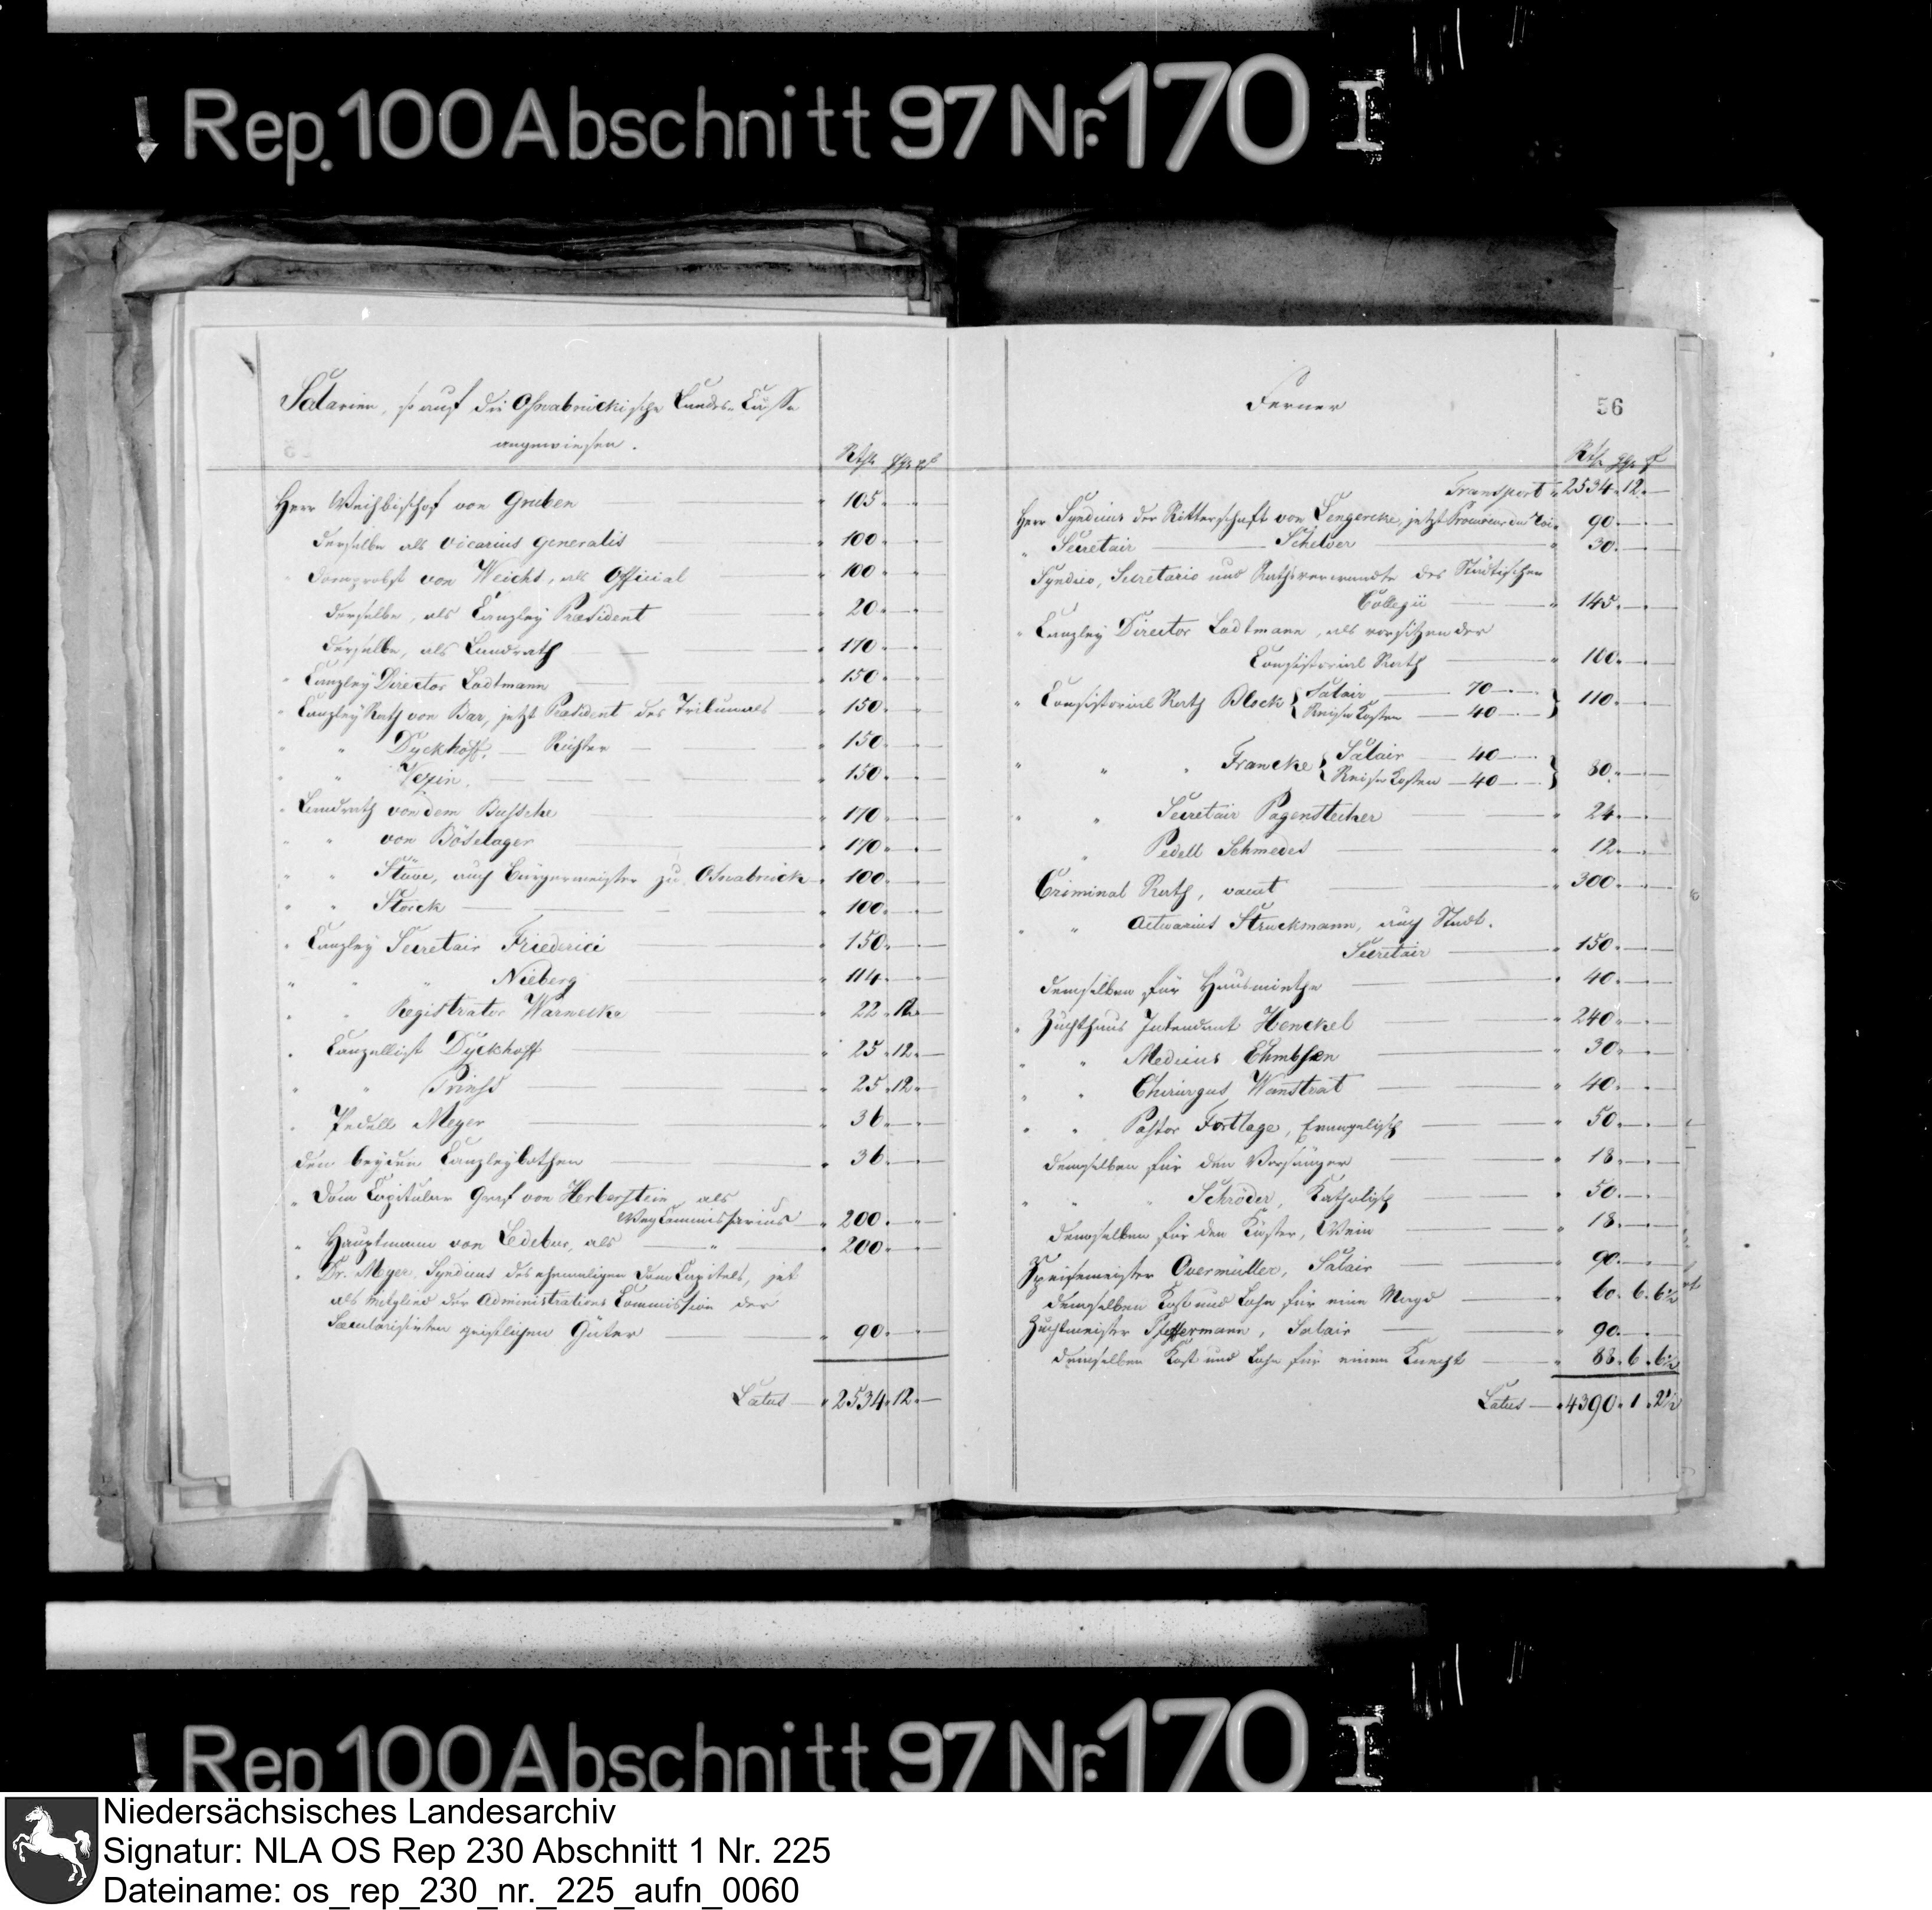 Rep. 100 Abschnitt 97 Nr. 170 I
Salarien, so auf die Osnabrückische Landes-Casse
angewiesen.
Rthlr ggr pf
Herr Weihbischof von Gruben — 105. —
derselbe als Vicarius generalis — 100. —
Domprobst von Weichs, als Official — 100. —
derselbe, als Canzley Præsident — 20. —
derselbe, als Landrath — 170. —
Canzley Director Lodtmann — 150. —
Canzley Rath von Bar, jetzt Præsident des Tribunals " 150. —
" " Dyckhoff, — Richter — " 150. —
" " Vezin. — " 150. —
Landrath von dem Bussche — " 170. —
" " von Böselager — " 170. —
" " Stüve, auch Bürgermeister zu Osnabrück " 100. —
" " Storck — " 100. —
" Canzley Secretair Friederici — " 150. —
" " " Nieberg — " 114. —
" " Registrator Warnecke — " 22. 12. —
" Canzellist Dyckhoff — " 25. 12. —
" " — " 25. 12. —
" Pedell Meyer — " 36. —
den beyden Canzleybothen — " 36. —
" Dom Capitular Graf von Herberstein, als
WegCommissarius — " 200. —
" Hauptmann von Ledebur, als — " — " 200. —
" Dr. Meyer, Syndicus des ehemaligen Dom Capitels, jetzt
als Mitglied der Administrations Commission der
Sæcularisirten geistlichen Güter — " 90. —
Latus — " 2534. 12. —
Ferner
56
Rthlr ggr pf
Transport " 2534. 12. —
Herr Syndicus der Ritterschaft von Lengercke, jetzt Procureur du Roi " 90. —
" Secretair — Schelver — " 30. —
Syndico, Secretario und Rathsverwandte des Städtischen
Collegii — " 145. —
" Canzley Director Lodtmann, als vorsitzender
Consistorial Rath — " 100. —
" Consistorial Rath Block { Salair — 70 — } 110. —
Reise Kosten — 40 —
" " " Francke { Salair — 40 — } 80. —
Reise Kosten — 40 —
" " Secretair Pagenstecher — " 24. —
" Pedell Schmedes — " 12. —
Criminal Rath, vacat — " 300. —
" " Actuarius Struckmann, auch Stadt-
Secretair — " 150. —
demselben für Hausmiethe — " 40. —
" Zuchthaus Intendant Henckel — " 240. —
" " Medicus Ehmbsen — " 30. —
" " Chirurgus Wanstrat — " 40. —
" " Pastor Fortlage, Evangelisch — " 50. —
demselben für den Vorsänger — " 18. —
" " " Schröder, Katholisch — " 50. —
demselben für den Küster, Wein — " 18. —
Speisemeister Overmüller, Salair — " 90. —
demselben Kost und Lohn für eine Magd — " 60. 6. 6½
Zuchtmeister Pfeffermann, Salair — " 90. —
demselben Kost und Lohn für einen Knecht — " 88. 6. 6½
Latus — " 4390. 1. 2½
Rep 100 Abschnitt 97 Nr. 170 I
Niedersächsisches Landesarchiv
Signatur: NLA OS Rep 230 Abschnitt 1 Nr. 225
Dateiname: os_rep_230_nr._225_aufn_0060